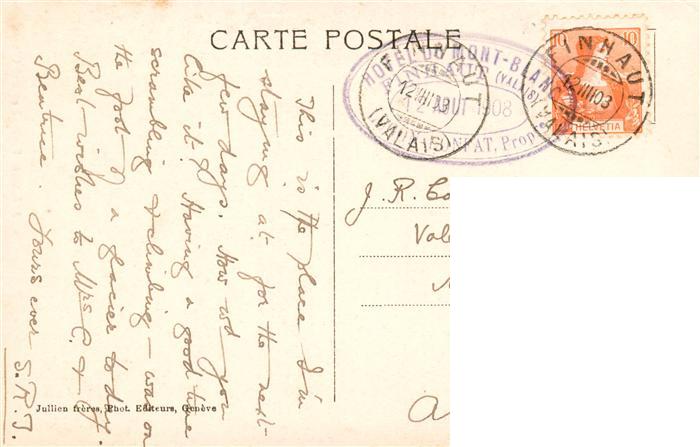 CARTE POSTALE
HOTEL DU MONT-BLANC
FINHAUT (VALAIS)
AOUT 1908
Prop
FINHAUT
12 VIII 03
(VALAIS)
FINHAUT
12 VIII 03
(VALAIS)
10 10
HELVETIA
This is the place I'm
staying at for the next
few days. How wd you
like it? Having a good time
scrambling & climbing – was on
the foot of a glacier to-day.
Best wishes to Mrs C. &
Beatrice. Yours ever
S.R.J.
J. R. Co
Val
A
Jullien frères, Phot. Editeurs, Genève